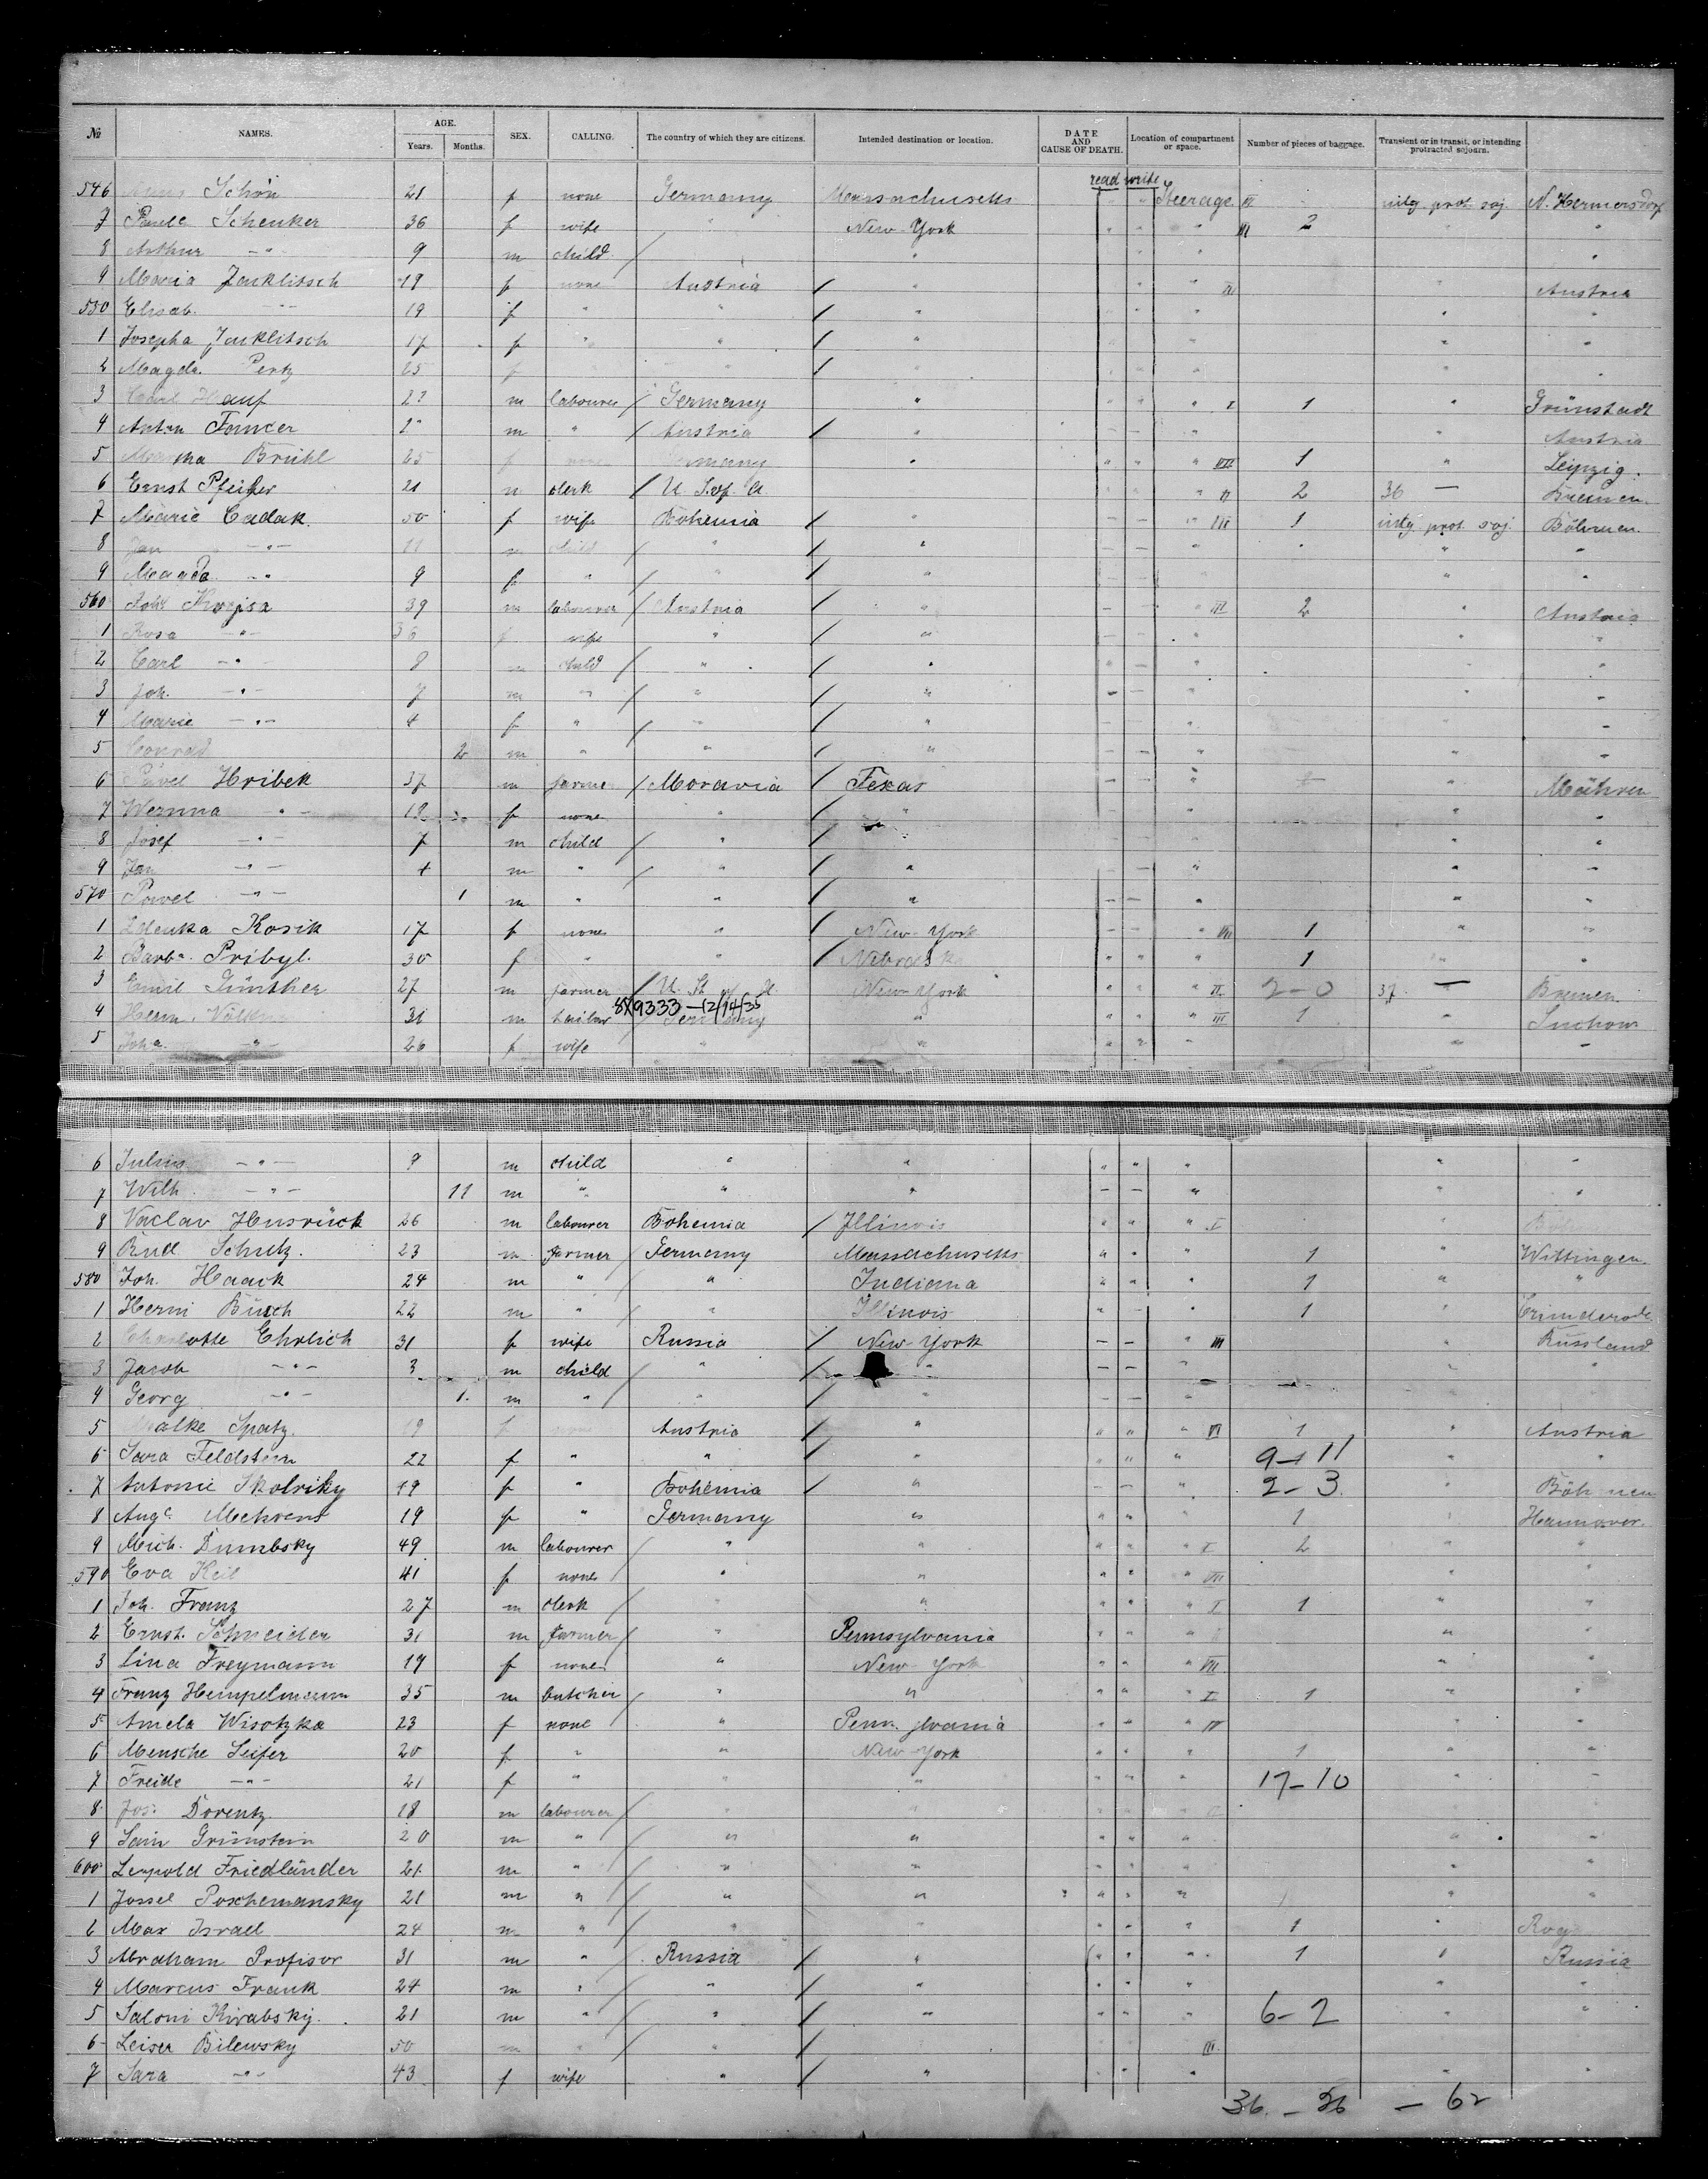 № NAMES. AGE. Years. Months. SEX. CALLING. The country of which they are citizens. Intended destination or location. DATE AND CAUSE OF DEATH. Location of compartment or space. Number of pieces of baggage. Transient or in transit, or intending protracted sojourn.
read write
546 Schön 21 f none Germany Massachusetts " Steerage III intg prot. soj N. Hermersdorf
7 Schenker 36 f wife " New-York " " " III 2 " "
8 Arthur -"- 9 m child " " "
9 Maria Jaklitsch 19 f none Austria " " Austria
550 Elisab. -"- 19 f " " " " " "
1 Josepha Jaklitsch 17 f " " " " " "
2 Magda. Pertz 25 f " " " "
3 Carl Hauf 23 m labourer Germany " " " " I 1 " Grünstadt
4 Anton m " Austria " — — " " Austria
5 Martha Brühl 25 f none Germany " " " " VII 1 " Leipzig.
6 Ernst Pfeiffer 21 m clerk U. S. of A " " " VI 2 36 — Bremen.
7 Marie Cadak. 50 f wife Bohemia " — — " III 1 intg prot. soj. Böhmen.
8 Jan -"- 11 m child " " — — " " "
9 Magda -"- 9 f " " " — — " "
560 Joh. 39 m labourer Austria " — — " III 2 " Austria
1 Rosa -"- 36 f wife " " — — " " "
2 Carl -"- 9 m child " " " — " "
3 Joh. -"- 7 m " " " — — " " "
4 Marie -"- 4 f " " " — — " " "
5 Conrad 2 m " " " — — " " "
6 Pavel Hribek 37 m farmer Moravia Texas — " " Mähren
7 -"- 12 f none " " — — " " "
8 Josef -"- 7 m child " " — — " " "
9 Jan -"- 4 m " " " — — " " "
570 Pavel -"- 1 m " " " — — " " "
1 Zdenka Kosik 17 f none " New-York — — " VII 1 " "
2 Barba. Pribyl. 30 f " " Nebraska " " " 1 " "
3 Emil Günther 27 m farmer U. St. of A. New-York " " " II 2-0 37 — Bremen.
8X9333-12/14/35
4 Herm. 31 m Germany " " " " III 1 " Suchow
5 Joha. -"- 26 f wife " " " " " " "
6 Julius -"- 9 m child " " " " " " "
7 Wilh. -"- 11 m " " " — — " "
8 Vaclav 26 m labourer Bohemia Illinois " " " I
9 Rud Schulz. 23 m farmer Germany Massachusetts " " " 1 " Wittingen
580 Joh. Haack 24 m " " Indiana " " " 1 " "
1 Herm Busch 22 m " " Illinois " — " 1 "
2 Charlotte Ehrlich 31 f wife Russia New-York — — " III " Russland
3 Jacob -"- 3 m child " " — — " "
4 Georg -"- 1. m " " " — — "
5 Spatz. 19 f none Austria " " " " VI 1 " Austria
6 Sara Feldstein 22 f " " " " " " 9-11 "
7 Antonie Skolniky 19 f " Bohemia " — — " 2-3. " Böhmen
8 Auga Mehrens 19 f " Germany " " " " 1 Hannover.
9 Mich. Dumbsky 49 m labourer " " " " " I 2 " "
590 Eva Keil 41 f none " " " " " VII "
1 Joh. Franz 27 m clerk " " " " " I 1 " "
2 Ernst. Schneider 31 m farmer " Pennsylvania " " " " "
3 Lina Freymann 19 f none " New-York " " " VII " "
4 Franz Hempelmann 35 m butcher " " " " " I 1 " "
5 Amela Wisotzka 23 f none " Pennsylvania " " " IV " "
6 Mensche Seifer 20 f " " New-York " " " 1 " "
7 Freide -"- 21 f " " " " " " 17-10 " "
8 Jos. Dorentz. 18 m labourer " " " " " " "
9 Sam Grünstein 20 m " " " " " " " "
600 Leopold Friedländer 21 m " " " " " " " "
1 Jossel Poschemansky 21 m " " " " " " " "
2 Max Israel 24 m " " " " " " 1 "
3 Abraham Profisor 31 m " Russia " " " " 1 " Russia
4 Marcus Frank 24 m " " " " " " " "
5 Salomi Kirabsky. 21 m " " " " " " 6-2 " "
6 Leiser Bilewsky 50 m " " III.
7 Sara -"- 43 f wife " " " " " "
36.-26 - 62